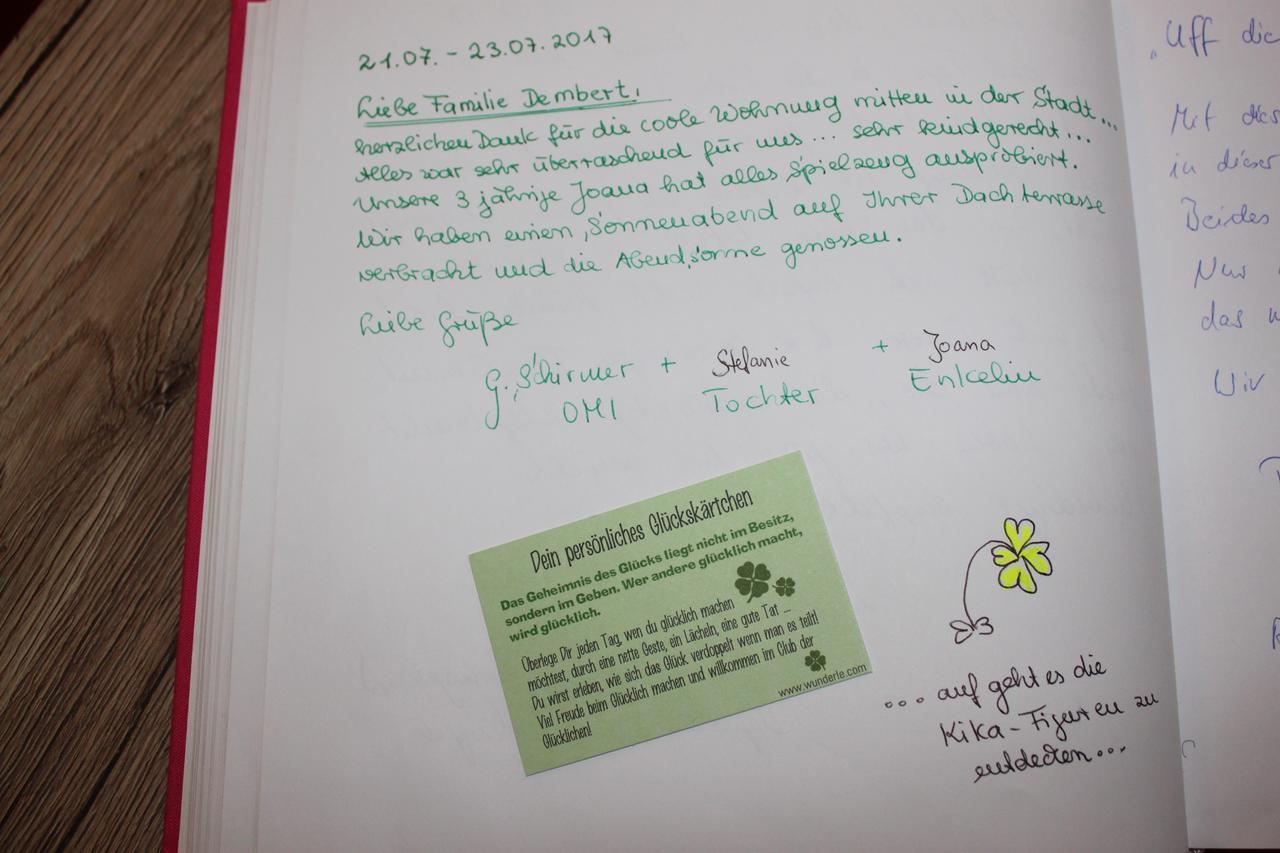 21.07. - 23.07.2017
Liebe Familie Dembert,
herzlichen Dank für die coole Wohnung mitten in der Stadt...
Alles war sehr überraschend für uns... sehr kindgerecht...
Unsere 3 jährige Joana hat alles Spielzeug ausprobiert.
Wir haben einen Sonnenabend auf Ihrer Dachterrasse
verbracht und die Abendsonne genossen.
Liebe Grüße
G. Schirmer + Stefanie + Joana
OMI Tochter Enkelin
Dein persönliches Glückskärtchen
Das Geheimnis des Glücks liegt nicht im Besitz,
sondern im Geben. Wer andere glücklich macht,
wird glücklich.
Überlege Dir jeden Tag, wen du glücklich machen
möchtest, durch eine nette Geste, ein Lächeln, eine gute Tat ...
Du wirst erleben, wie sich das Glück verdoppelt wenn man es teilt!
Viel Freude beim Glücklich machen und willkommen im Club der
Glücklichen!
www.wunderle.com
... auf geht es die
Kika-Figuren zu
entdecken...
"Uff die
Mit
in dieser
Beides
Nur
das
Wir